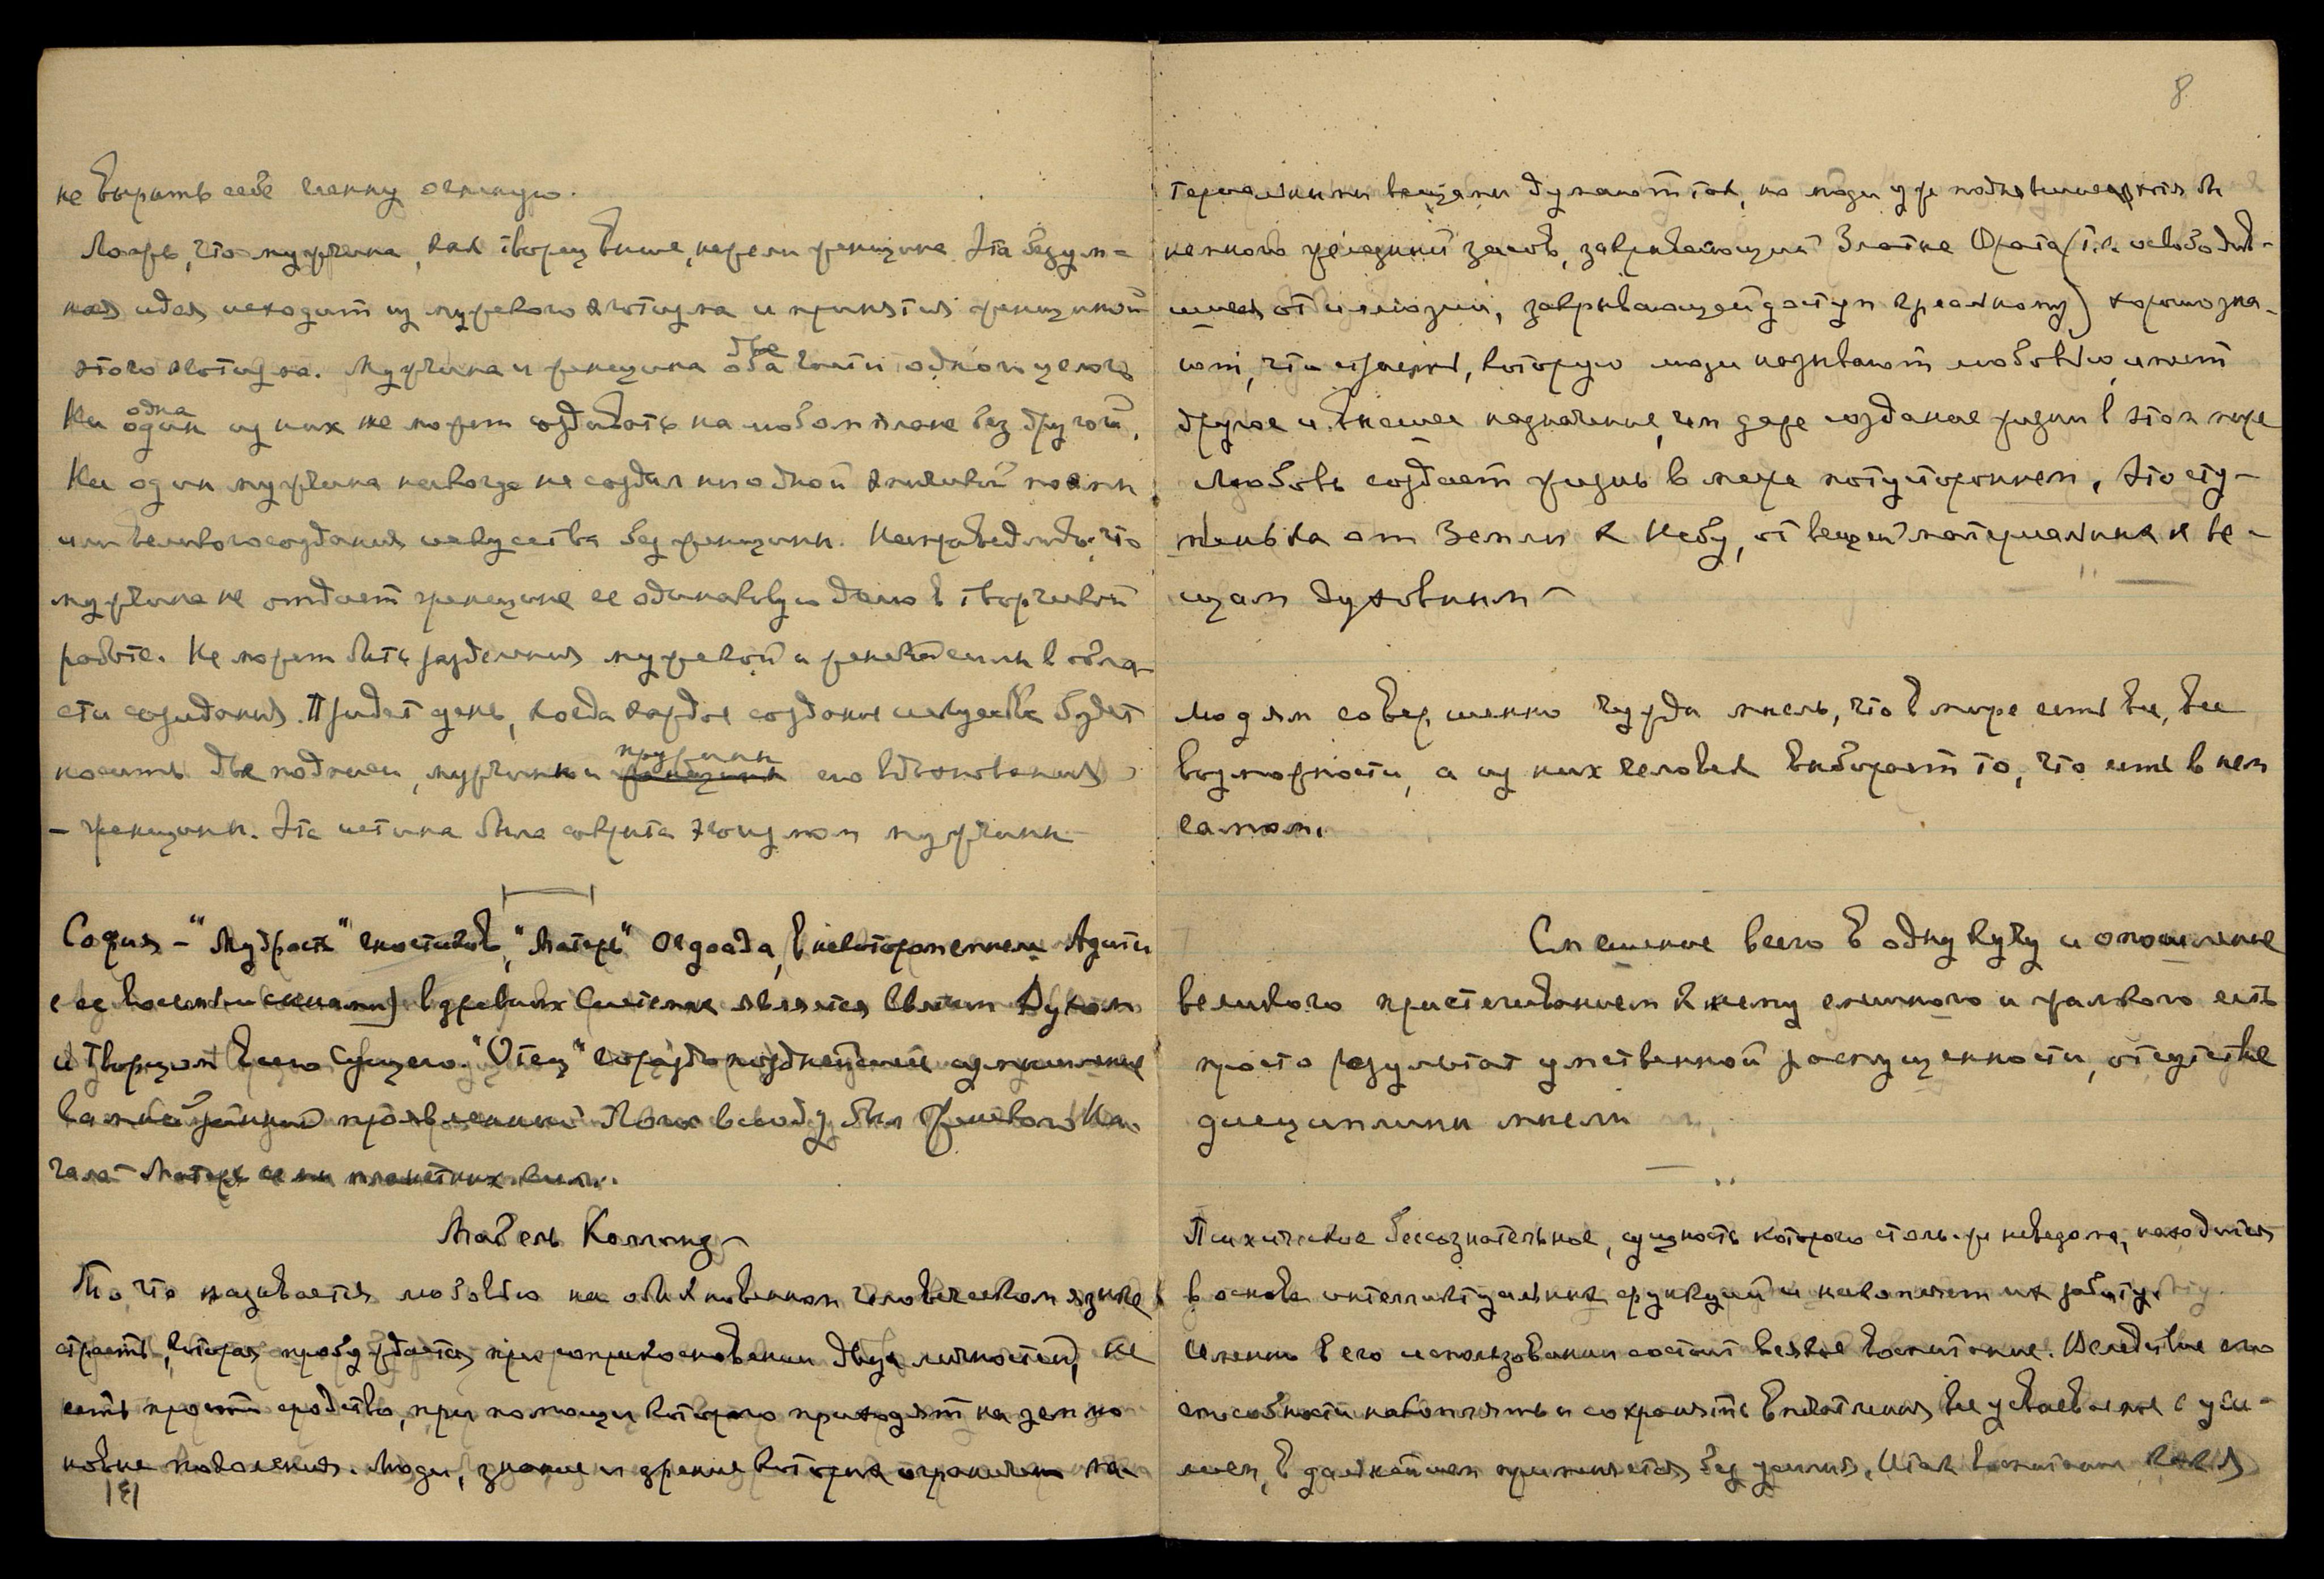 8
не вырыть себе
Ложь, что мужчина, как творец выше, нежели женщина. Эта безум-
ная идея исходит из мужского эготизма и принятия женщиной
этого эготизма. Мужчина и женщина две оба части одного целого
Ни одна один из них не может создавать на любом плане без другой,
Ни один мужчина никогда не создал ни одной поэмы
или великого создания искусства без женщины. Несправедливо, что
мужчина не отдает женщине ее одинаковую долю в творческой
работе. Не может быть разделения мужской и женской силы в обла-
сти созидания. Придет день, когда каждое создание искусства будет
носить две подписи, мужчины и пружины женщины его вдохновения
– женщины. Эта истина была сокрыта эгоизмом мужчины
София – "Мудрость" гностиков, "Матерь" Огдоада, в некотором смысле Адити
с ее восемью сынами) в древних системах является Святым Духом
и Творцом всего Сущего. "Отец" гораздо позднейшее измышление
проявленный Логос всюду был женского На-
чала – Матерь семи планетных сил.
Мабель Коллинз
То, что называется любовью на обыкновенном человеческом языке
страсть, которая пробуждается при соприкосновении двух личностей, не
есть просто средство, при помощи которого приходят на землю
новые поколения. Люди, знание и зрение которых ограничены ма-
териальными вещами думают так, но люди уже
немного железный засов, закрывающий Златые Врата (т.е. освободив-
шиеся от иллюзии, закрывающей доступ к реальному) хорошо зна-
ют, что страсть, которую люди называют любовью, имеет
другое и высшее назначение, чем даже создание жизни в этом мире
Любовь создает жизнь в мире потустороннем, это сту-
пенька от Земли к Небу, от вещей материальных к ве-
щам духовным
Людям совершенно чужда мысль, что в мире есть все, все
возможности, а из них человек выбирает то, что есть в нем
самом.
Смешение всего в одну кучу и опошление
великого пристегиванием к нему смешного и жалкого есть
просто результат умственной распущенности, отсутствие
дисциплины мысли
Психическое бессознательное, сущность которого столь же неведома, находится
в основе интеллектуальных функций и наполняет их работу.
Именно в его использовании состоит всякое воспитание. Вследствие его
способности накоплять и сохранять впечатления все усваиваемое с уси-
лием, в дальнейшем применяется без усилия. Итак воспитание